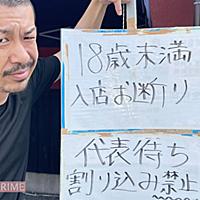 18歳未満
入店お断り
代表待ち
割り込み禁止
PRIME